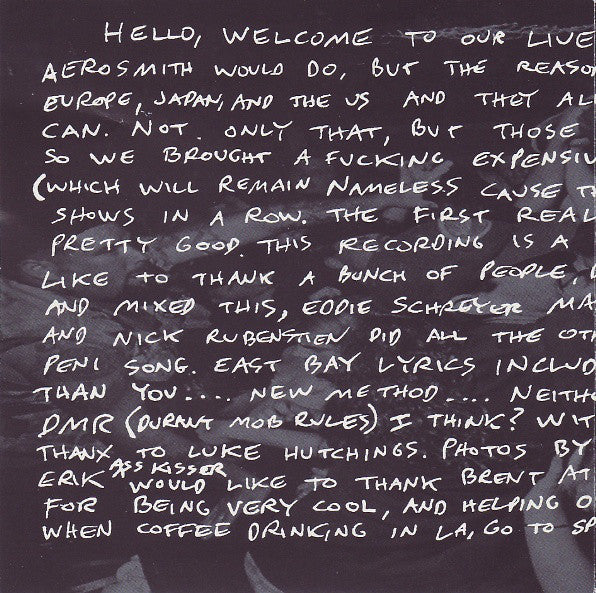 HELLO, WELCOME TO OUR LIVE
AEROSMITH WOULD DO, BUT THE REASO
EUROPE, JAPAN, AND THE US AND THEY AL
CAN. NOT. ONLY THAT, BUT THOSE
SO WE BROUGHT A FUCKING EXPENSIV
(WHICH WILL REMAIN NAMELESS CAUSE TH
SHOWS IN A ROW. THE FIRST REAL
PRETTY GOOD. THIS RECORDING IS A
LIKE TO THANK A BUNCH OF PEOPLE,
AND MIXED THIS, EDDIE SCHREYER MA
AND NICK RUBENSTIEN DID ALL THE OTH
PENI SONG. EAST BAY LYRICS INCLUD
THAN YOU.... NEW METHOD.... NEITHE
DMR (DURANT MOB RULES) I THINK? WIT
THANX TO LUKE HUTCHINGS. PHOTOS BY
ERIK ASS KISSER WOULD LIKE TO THANK BRENT AT
FOR BEING VERY COOL, AND HELPING O
WHEN COFFEE DRINKING IN LA, GO TO SP